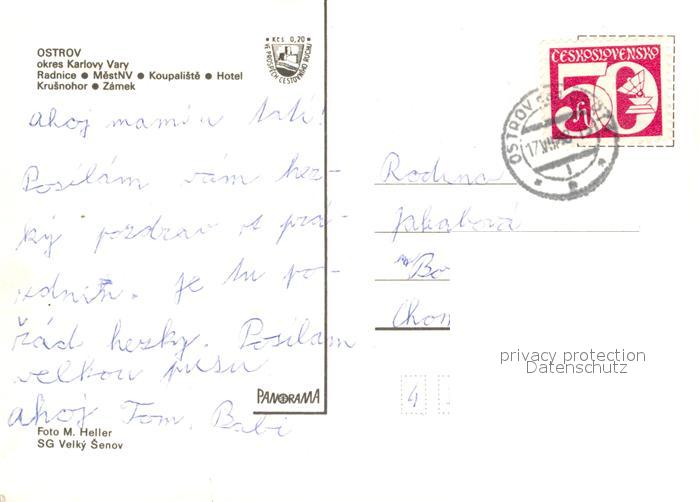 OSTROV
okres Karlovy Vary
Radnice ● MěstNV ● Koupaliště ● Hotel
Krušnohor ● Zámek
Kčs 0,20
VE PROSPĚCH CESTOVNÍHO RUCHU
ČESKOSLOVENSKO
50 h
OSTROV
17.VII
ahoj mami a tati!
Posílám vám hez-
ký pozdrav z prá-
zdnin. je tu po-
řád hezky. Posílám
velkou pusu
ahoj Tom, Babi
Rodina
Jakabová
Bo
Chom
4
PANORAMA
Foto M. Heller
SG Velký Šenov
privacy protection
Datenschutz